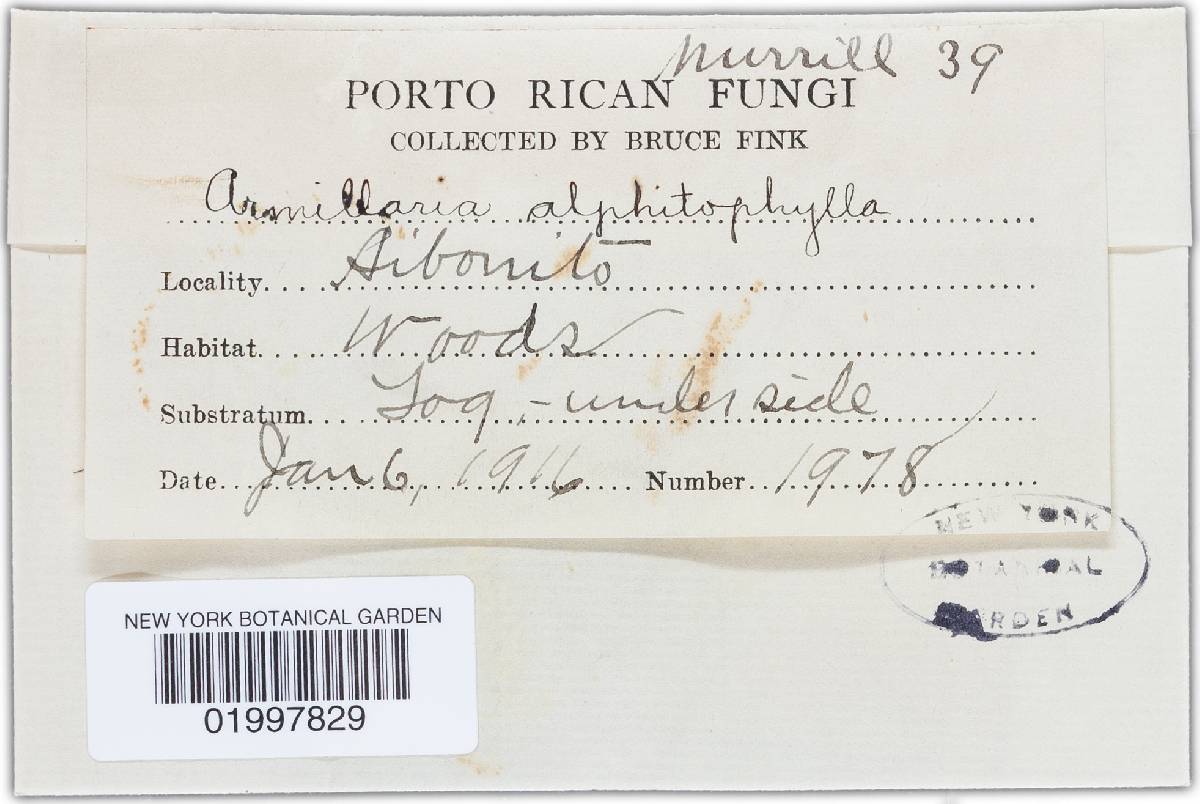 Murrill 39
PORTO RICAN FUNGI
COLLECTED BY BRUCE FINK
Armillaria alphitophylla
Locality.... Aibonito
Habitat.... Woods
Substratum.... Log, - under side
Date.. Jan 6, 1916 Number.. 1978
NEW YORK
BOTANICAL
GARDEN
NEW YORK BOTANICAL GARDEN
01997829